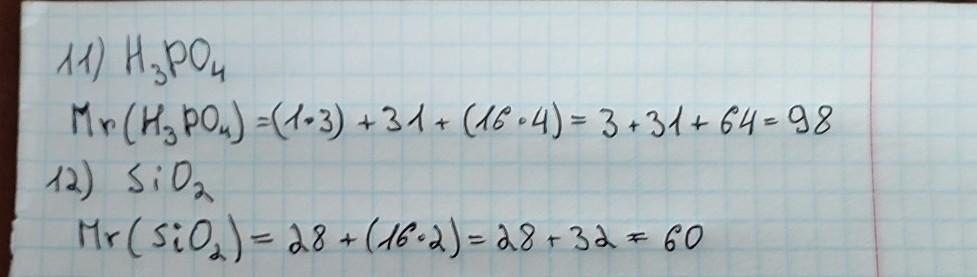 11) H₃PO₄
Mr(H₃PO₄) = (1·3) + 31 + (16·4) = 3 + 31 + 64 = 98
12) SiO₂
Mr(SiO₂) = 28 + (16·2) = 28 + 32 = 60